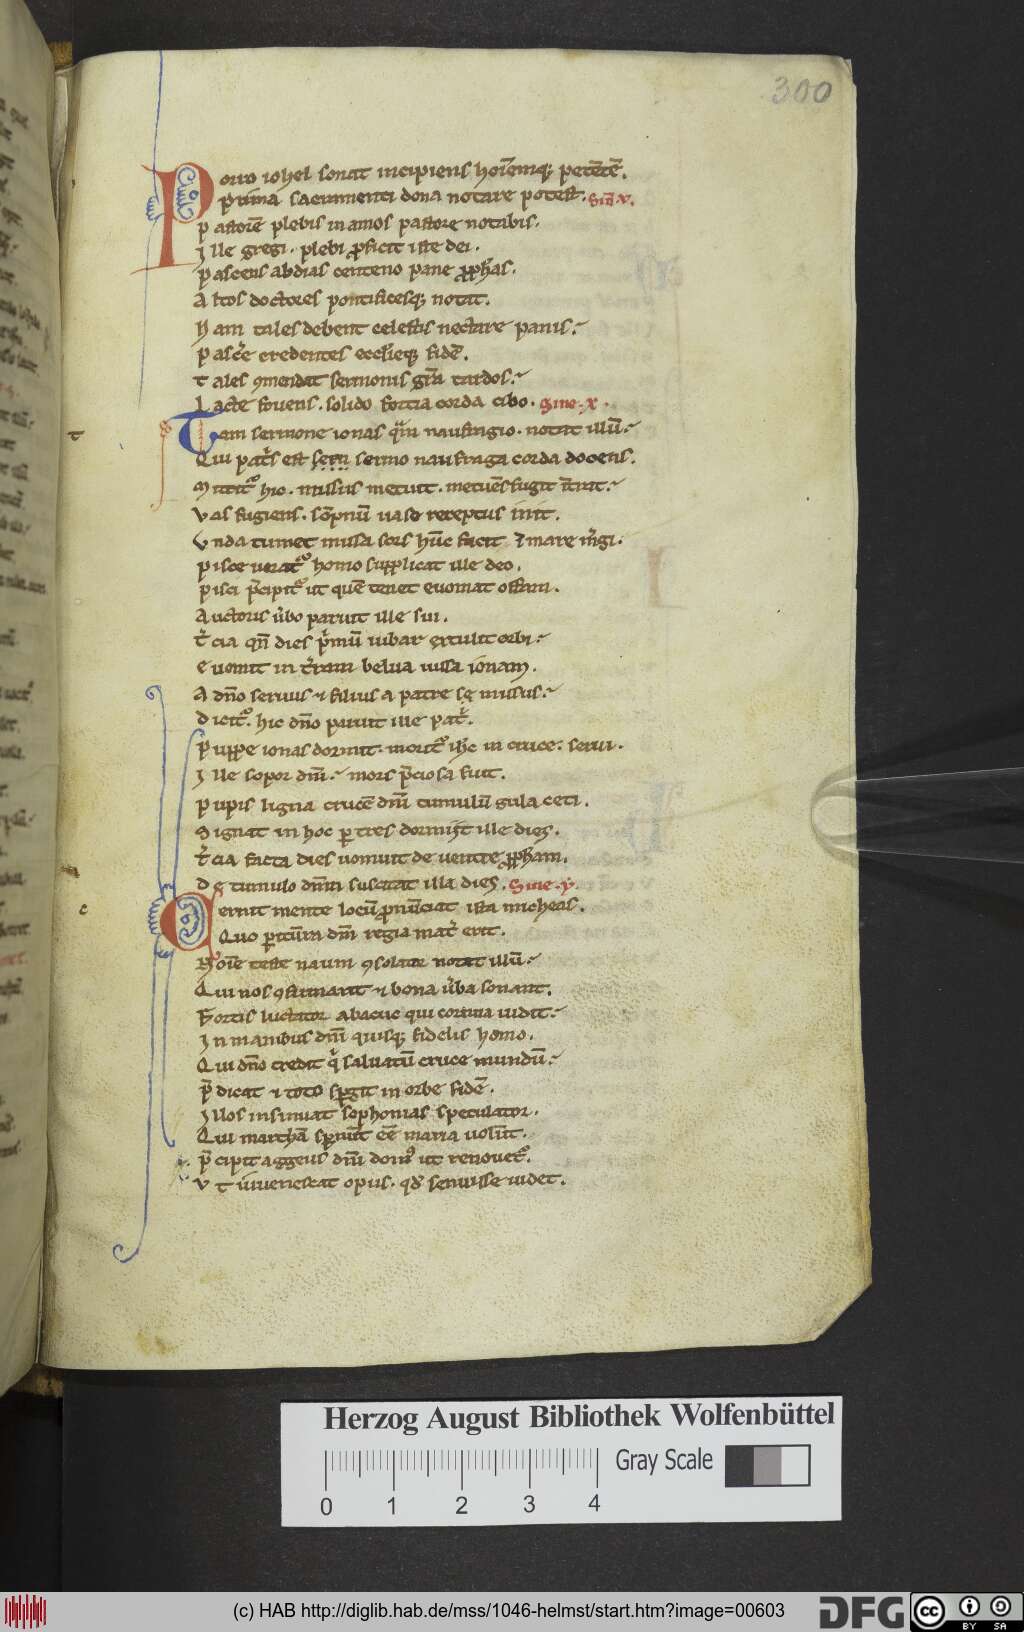 300
Porro iohel sonat incipiens hoīemq; petētē.
Prima sacramenti dona notare potest. Sinē v.
Pastorē plebis in amos pastore notabis.
Ille gregi. plebi proficit iste dei.
Pascens abdias centeno pane prophas.
Altos doctores pontificesq; notat.
Nam tales debent celestis nectare panis.
Pascere credentes
Tales 9mendat sermonis grā tardos.
Lacte fovens. solido fortia corda cibo. Sine. x.
t
Tam sermone ionas naufragio. notat illū.
Qui patris est sermo naufraga corda docens.
Mittit hic. missus metuit. metuēs fugit
Vas fugiens. sōpnū vase receptus init.
Vnda tumet missa sors hūc facit
Pisce homo supplicat ille deo.
Pisci p̄cipit ut quē tenet evomat offam.
Auctoris v̄bo paruit ille sui.
Tercia qn̄ dies p̄mū iubar extulit orbi.
Evomit in belua iussa ionam.
A dn̄o servus filius a patre missus.
Dicit. hic dn̄o paruit ille pat.
Puppe ionas dormit. morit ihc in cruce. servi.
Ille sopor dn̄i. mors p̄ciosa fuit.
Pupis ligna crucē dn̄i tumulū gula ceti.
Signat in hoc p tres dormist ille dies.
Tercia facta dies vomuit de ventre propham.
De tumulo dn̄m suscitat illa dies. Sine. y.
c
Cernit mente locū pronūciat ista micheas.
Quo dn̄i regia mat erit.
teste naum 9solator notat illū.
Qui nos 9firmarit bona v̄ba sonant.
Fortis luctator abacuc qui cornua vidit.
In manibus dn̄i quisq; fidelis homo.
Qui dn̄o credit salvatū cruce mundū.
P̄dicat toto spgit in orbe fidē.
Illos insinuat sophonias speculator.
Qui marthā
P̄cipit aggeus dn̄i dom ut renovet.
Vt iuvenescat opus. qd senuisse videt.
Herzog August Bibliothek Wolfenbüttel
Gray Scale
0 1 2 3 4
(c) HAB http://diglib.hab.de/mss/1046-helmst/start.htm?image=00603
DFG
cc BY SA